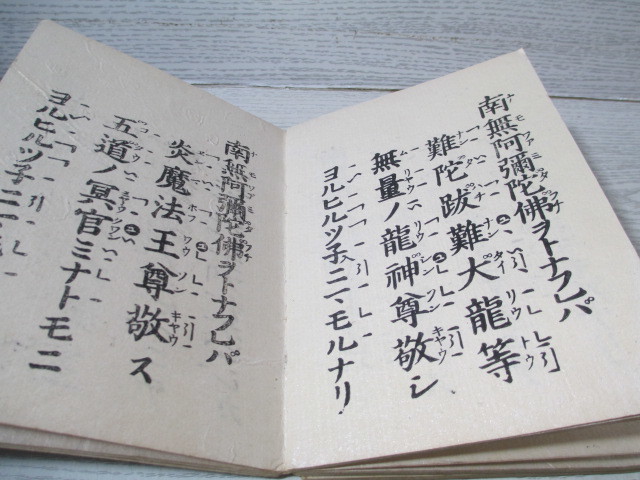 南無阿彌陀佛ヲトナフレバ
難陀跋難大龍等
無量ノ龍神尊敬シ
ヨルヒルツ子ニマモルナリ
南無阿彌陀佛ヲトナフレバ
炎魔法王尊敬ス
五道ノ冥官ミナトモニ
ヨルヒルツ子ニマモ